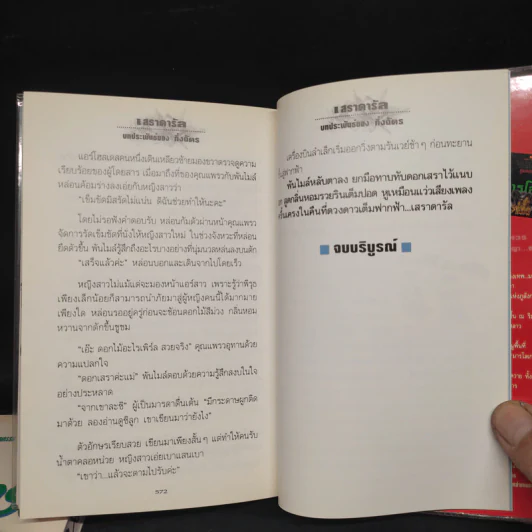 เสราดารัล
บทประพันธ์ของ กิ่งฉัตร
แอร์โฮสเตสคนหนึ่งเดินเหลียวซ้ายมองขวาตรวจดูความ
เรียบร้อยของผู้โดยสาร เมื่อมาถึงที่ของคุณแพรวกับพันไมล์
หล่อนค้อมร่างลงเอ่ยกับหญิงสาวว่า
“เข็มขัดมีสลัดไม่แน่น ดิฉันช่วยทำให้นะคะ”
โดยไม่รอฟังคำตอบรับ หล่อนก้มตัวผ่านหน้าคุณแพรว
จัดการรัดเข็มขัดที่นั่งให้หญิงสาวใหม่ ในช่วงจังหวะที่หล่อน
ยืดตัวขึ้น พันไมล์รู้สึกถึงอะไรบางอย่างที่นุ่มนวลหล่นลงบนตัก
“เสร็จแล้วค่ะ” หล่อนบอกและเดินจากไปโดยเร็ว
หญิงสาวไม่แม้แต่จะมองหน้าแอร์สาว เพราะรู้ว่าพิรุธ
เพียงเล็กน้อยก็สามารถนำภัยมาสู่ผู้หญิงคนนี้ได้มากมาย
เพียงใด หล่อนรออยู่ครู่ก่อนจะช้อนดอกไม้สีม่วง กลิ่นหอม
หวานจากตักขึ้นชูชม
“เอ๊ะ ดอกไม้อะไรเพิร์ล สวยจริง” คุณแพรวอุทานด้วย
ความแปลกใจ
“ดอกเสราค่ะแม่” พันไมล์ตอบด้วยความรู้สึกสงบในใจ
อย่างประหลาด
“จากเขาละซิ” ผู้เป็นมารดาตื่นเต้น “มีกระดาษผูกติด
มาด้วย ลองอ่านดูซิลูก เขาเขียนมาว่ายังไง”
ตัวอักษรเรียบสวย เขียนมาเพียงสั้นๆ แต่ทำให้คนรับ
น้ำตาคลอหน่วย หญิงสาวเอ่ยเบาแสนเบา
“เขาว่า...แล้วจะตามไปรับค่ะ”
572
เสราดารัล
บทประพันธ์ของ กิ่งฉัตร
เครื่องบินลำเล็กเริ่มออกวิ่งตามรันเวย์ช้าๆ ก่อนทะยาน
สู่ฟากฟ้า
พันไมล์หลับตาลง ยกมือทาบทับดอกเสราไว้แนบ
สูดกลิ่นหอมรวยรินเต็มปอด หูเหมือนแว่วเสียงเพลง
ในคืนที่ดวงดาวเต็มฟากฟ้า...เสราดารัล
จบบริบูรณ์